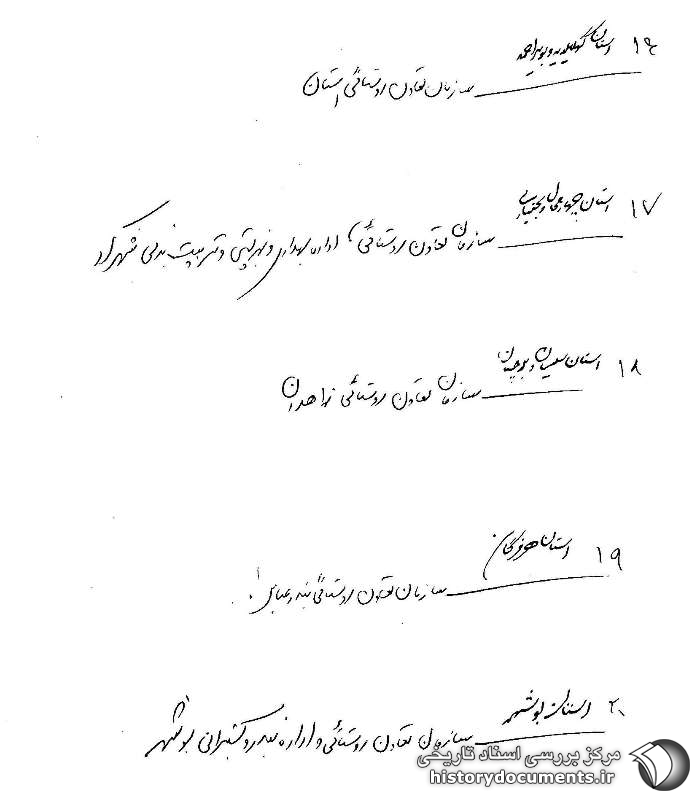 ۱۶ استان کهگیلویه و بویراحمد
سازمان تعاون روستائی استان
۱۷ استان چهارمحال و بختیاری
سازمان تعاون روستائی، اداره بهداری و بهزیستی و تربیت بدنی شهرکرد
۱۸ استان سیستان و بلوچستان
سازمان تعاون روستائی زاهدان
۱۹ استان هرمزگان
سازمان تعاون روستائی بندرعباس
۲۰ استان بوشهر
سازمان تعاون روستائی و اداره بندر و کشتیرانی بوشهر
مرکز بررسی اسناد تاریخی
historydocuments.ir